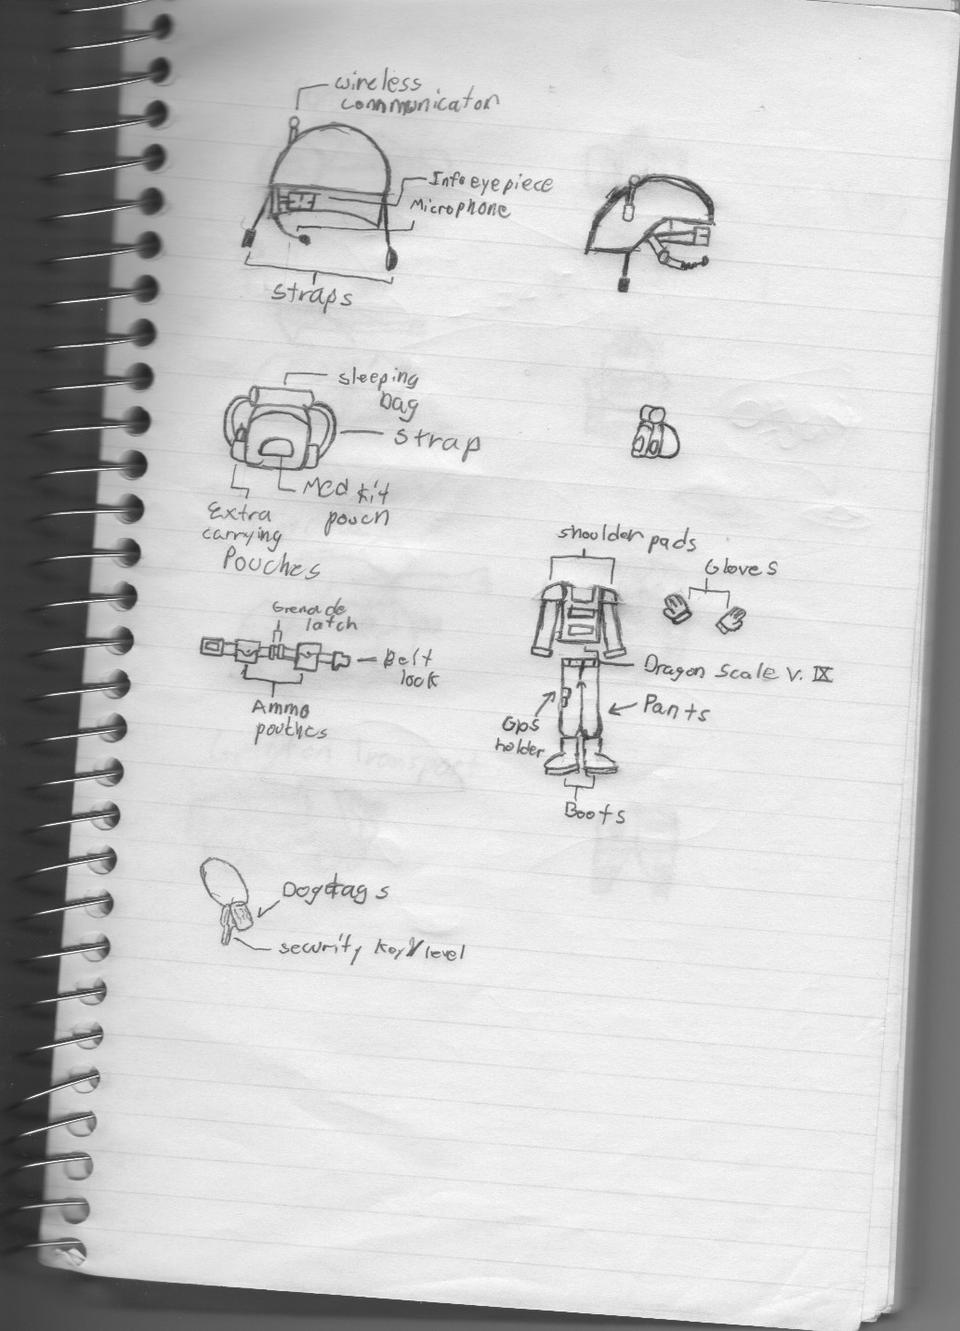 wireless
communicator
Info eyepiece
Microphone
straps
sleeping
bag
strap
Med kit
pouch
Extra
carrying
Pouches
shoulder pads
Gloves
Grenade
latch
Belt
look
Ammo
pouches
Dragon Scale V. IX
Pants
Gps
holder
Boots
Dogtags
security key/level